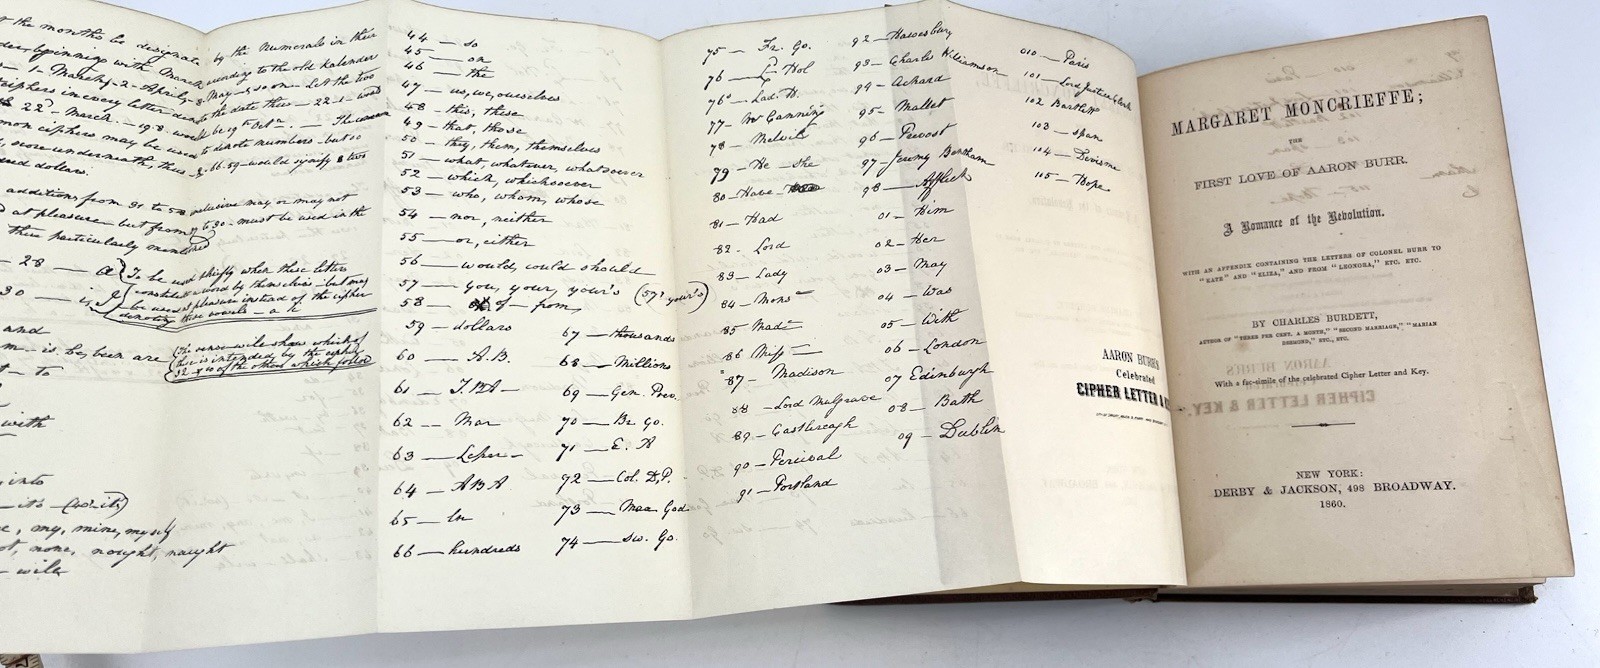 r the months be designate by the Numerals in their
beginning with March according to the old Kalender
1- March, 2- April, 3- May & so on- Let the two
ciphers in every letter denote the date thus - 22-1- would
be 22d March. - 19.8. would be 19th Octr. - The common
mon ciphers may be used to denote numbers - but so
score underneath, thus 66.59 would signify 2 two
dred dollars.
additions, from 31 to 58 inclusive may or may not
at pleasure - but from to 30 - must be used in the
there particularly mentioned
- 28 - a To be used chiefly when these letters
constitute a word by themselves - but may
30 - is I be used at pleasure instead of the cipher
denoting these vowels - a
and
m - is, be, been are The sense will show which of
these is intended by the cipher
32 & so of the others which follow
- to
with
into
- its - (40 its)
my, mine, myself
ot, none, nought, naught
- will
44 - so
45 - on
46 - the
47 - us, we, ourselves
48 - this, these
49 - that, those
50 - they, them, themselves
51 - what, whatever, whatsoever
52 - which, whichsoever
53 - who, whom, whose
54 - nor, neither
55 - or, either
56 - would, could should
57 - you, your, your's (57' your's)
58 - of - from,
59 - dollars
60 - A.B.
61 - T.B.A-
62 - Mar
63 - Leper-
64 - A B A
65 - In
66 - hundreds
67 - thousands
68 - Millions
69 - Gen. Prev.
70 - Br Go.
71 - E. A
72 - Col. D.P.
73 - Maa God
74 - Sw. Go.
75 - Fr. Go.
76 - Ld Hol
76° - Lad. H.
77 - Mr Canning
78 - Melvil
79 - He - she
80 - Have
81 - Had
82 - Lord
83 - Lady
84 - Mons
85 - Made
86 - Miss
87 - Madison
88 - Lord Mulgrave
89 - Castlereagh
90 - Percival
91 - Portland
92 - Hawesbury
93 - Charles Williamson
94 - Achard
95 - Mallet
96 - Prevost
97 - Jeremy Bentham
98 - Affleck
01 - Him
02 - Her
03 - May
04 - Was
05 - With
06 - London
07 Edinburgh
08 - Bath
09 - Dublin
010 - Paris
101 - Lord Justice Clerk
102 Bartlett
103 - Span
104 - Devisme
105 - Hope
AARON BURR'S
Celebrated
CIPHER LETTER &
MARGARET MONCRIEFFE;
THE
FIRST LOVE OF AARON BURR.
A Romance of the Revolution.
WITH AN APPENDIX CONTAINING THE LETTERS OF COLONEL BURR TO
"KATE" AND "ELIZA," AND FROM "LEONORA," ETC. ETC.
BY CHARLES BURDETT,
AUTHOR OF "THREE PER CENT. A MONTH," "SECOND MARRIAGE," "MARIAN
DESMOND," ETC., ETC.
With a fac-simile of the celebrated Cipher Letter and Key.
NEW YORK:
DERBY & JACKSON, 498 BROADWAY.
1860.